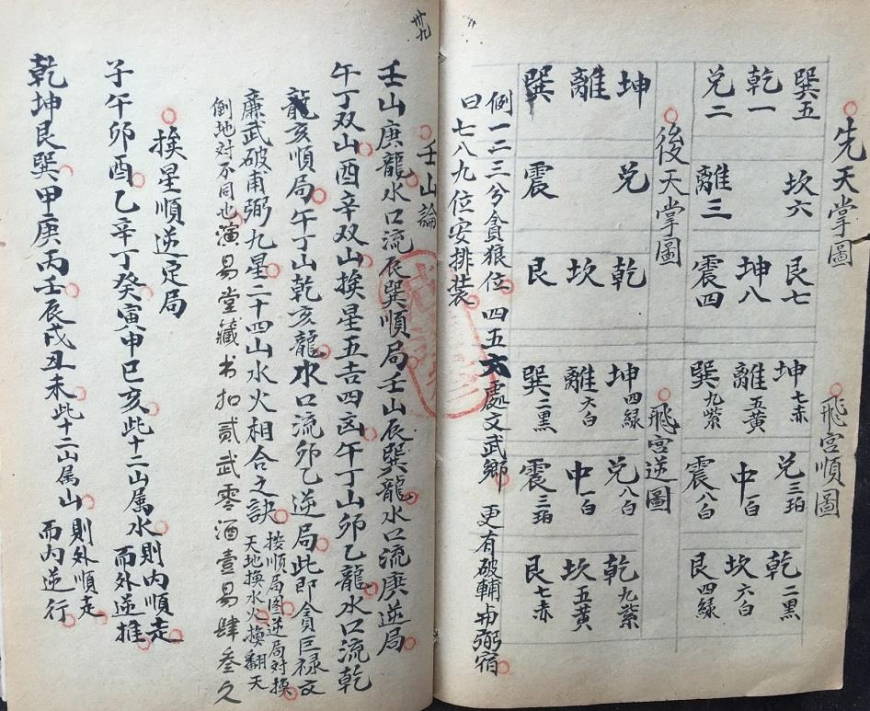 先天掌圖
巽五 坎六 艮七
乾一 坤八
兌二 離三 震四
飛宮順圖
坤七赤 兌三珀 乾二黑
離五黃 中一白 坎六白
巽九紫 震八白 艮四緑
後天掌圖
坤 兌 乾
離 坎
巽 震 艮
飛宮逆圖
坤四緑 兌八白 乾九紫
離六白 中一白 坎五黃
巽二黑 震三珀 艮七赤
例一二三兮貪狼位 四五六處文武鄉 更有破輔與弼宿
曰七八九位安排装
卅九
壬山論
壬山庚龍水口流辰巽順局壬山辰巽龍水口流庚逆局
午丁双山酉辛双山挨星五吉四凶午丁山卯乙龍水口流乾
龍亥順局午丁山乾亥龍水口流卯乙逆局此即貪巨禄文
廉武破甫弼九星二十四山水火相合之訣
按順局図逆局対換
天地換水火換翻天
倒地対不同也演易堂藏书扣貳武零酒壹易肆叁久
挨星順逆定局
子午卯酉乙辛丁癸寅申巳亥此十二山属水則內順走
而外逆推
乾坤艮巽甲庚丙壬辰戌丑未此十二山属山則外順走
而內逆行